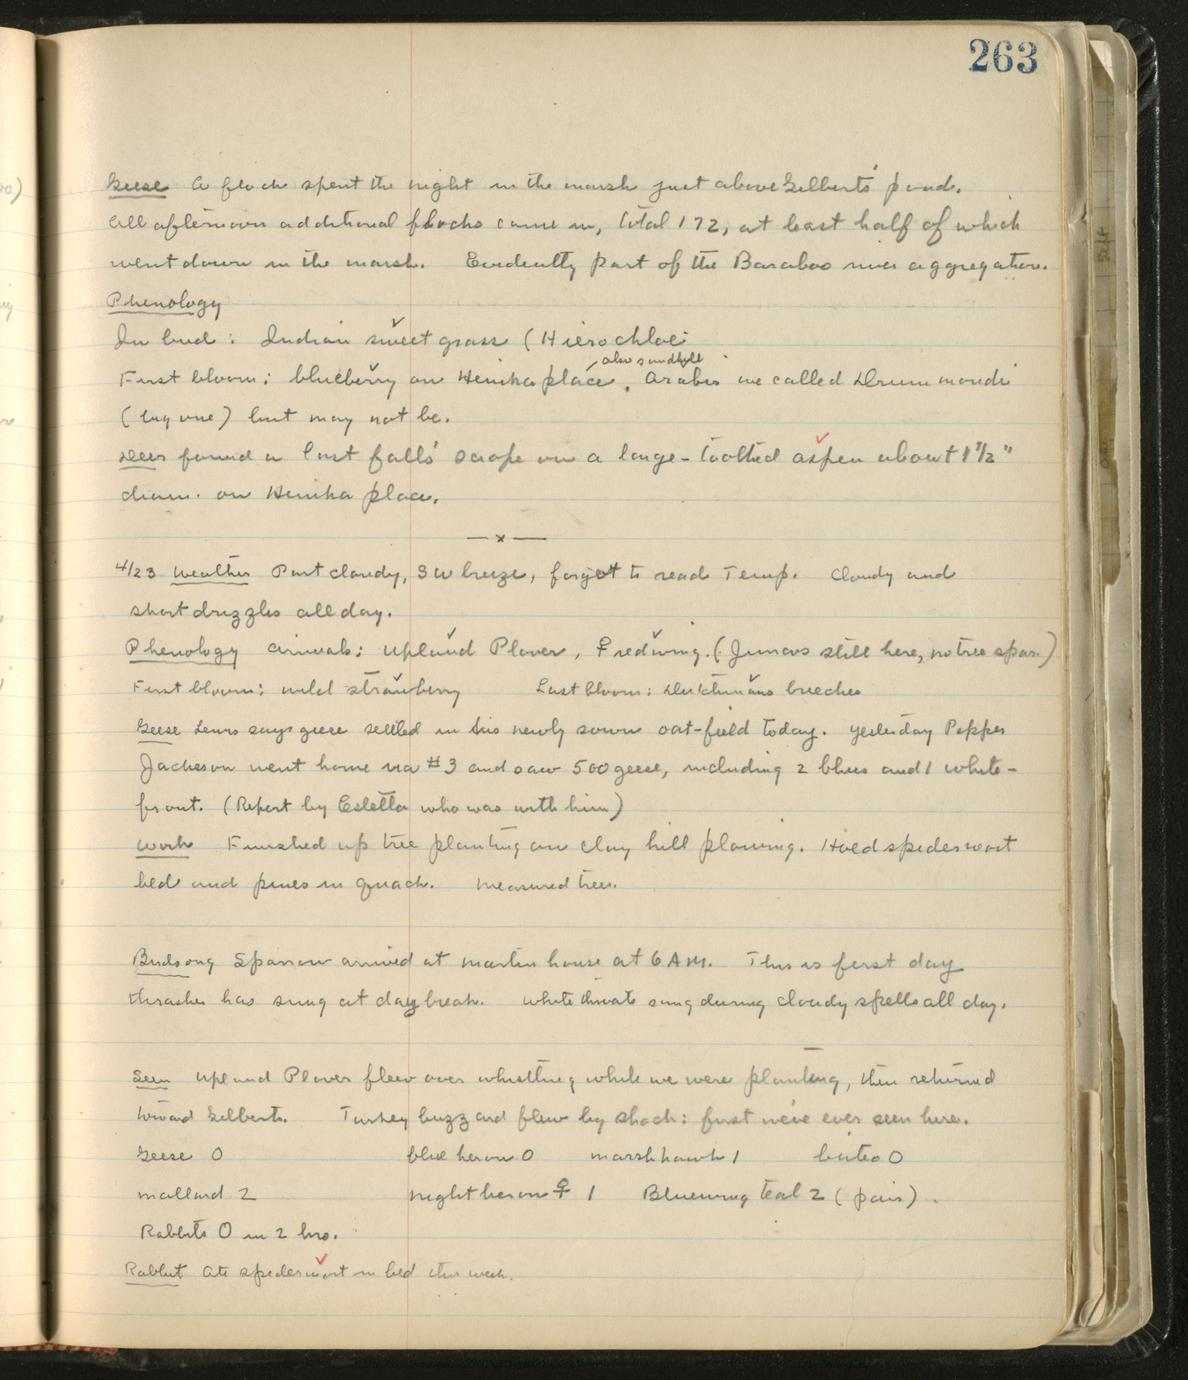 263
Geese A flock spent the night in the marsh just above Gilberts' pond.
All afternoon additional flocks came in, total 172, at least half of which
went down in the marsh. Evidently part of the Baraboo river aggregation.
Phenology
In bud: Indian sweet grass (Hierochloe
also sandhill
First bloom: blueberry on Heinika place, Arabis we called Drummondi
(big one) but may not be.
Deer found a last falls' scrape on a large-toothed aspen about 1 1/2"
diam. on Heinika place.
—x—
4/23 Weather Part cloudy, SW breeze, forgot to read Temp. Cloudy and
short drizzles all day.
Phenology arrivals: upland Plover, ♀ redwing. (Juncos still here, no tree spar.)
First bloom: wild strawberry Last bloom: Dutchmans breeches
Geese Lewis says geese settled in his newly sown oat-field today. Yesterday Pepper
Jackson went home via #3 and saw 500 geese, including 2 blues and 1 white-
front. (Report by Estella who was with him)
Work Finished up tree planting on clay hill plowing. Hoed spiderwort
bed and pines in quack. Measured trees.
Birdsong Sparrow arrived at martin house at 6 AM. This is first day
thrasher has sung at daybreak. White throats sung during cloudy spells all day.
Seen Upland Plover flew over whistling while we were planting, then returned
toward Gilberts. Turkey buzzard flew by shack: first we've ever seen here.
Geese 0 blue heron 0 marsh hawk 1 buteo 0
mallard 2 night heron ♀ 1 Bluewing teal 2 (pair).
Rabbits 0 in 2 hrs.
Rabbit ate spiderwort in bed this week.